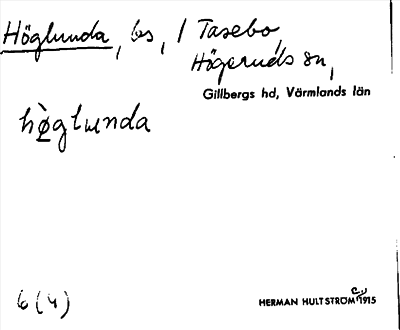 Höglunda, bs, / Tasebo,
Högeruds sn,
Gillbergs hd, Värmlands län
hø̀glunda
6 (4)
HERMAN HULTSTRÖM 1915